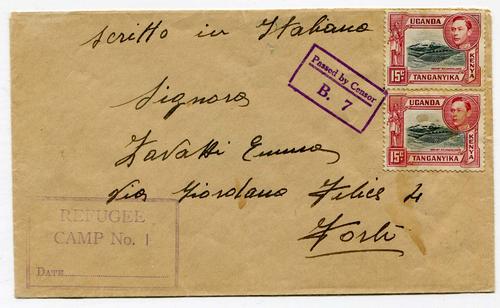 scritto in Italiano
UGANDA
KENYA
15c
TANGANYIKA
Passed by Censor
B. 7
Signora
UGANDA
KENYA
15c
TANGANYIKA
Zavatti Emma
Via Giordano Felice 4
Forlì
REFUGEE
CAMP No. 1
DATE